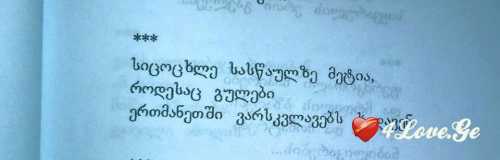 ***
სიცოცხლე სასწაულზე მეტია,
როდესაც გულები
ერთმანეთში ვარსკვლავებს
4Love.Ge